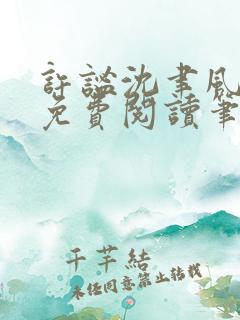 許謐沈聿風
免費閱讀筆
千芊結
未經同意禁止轉載